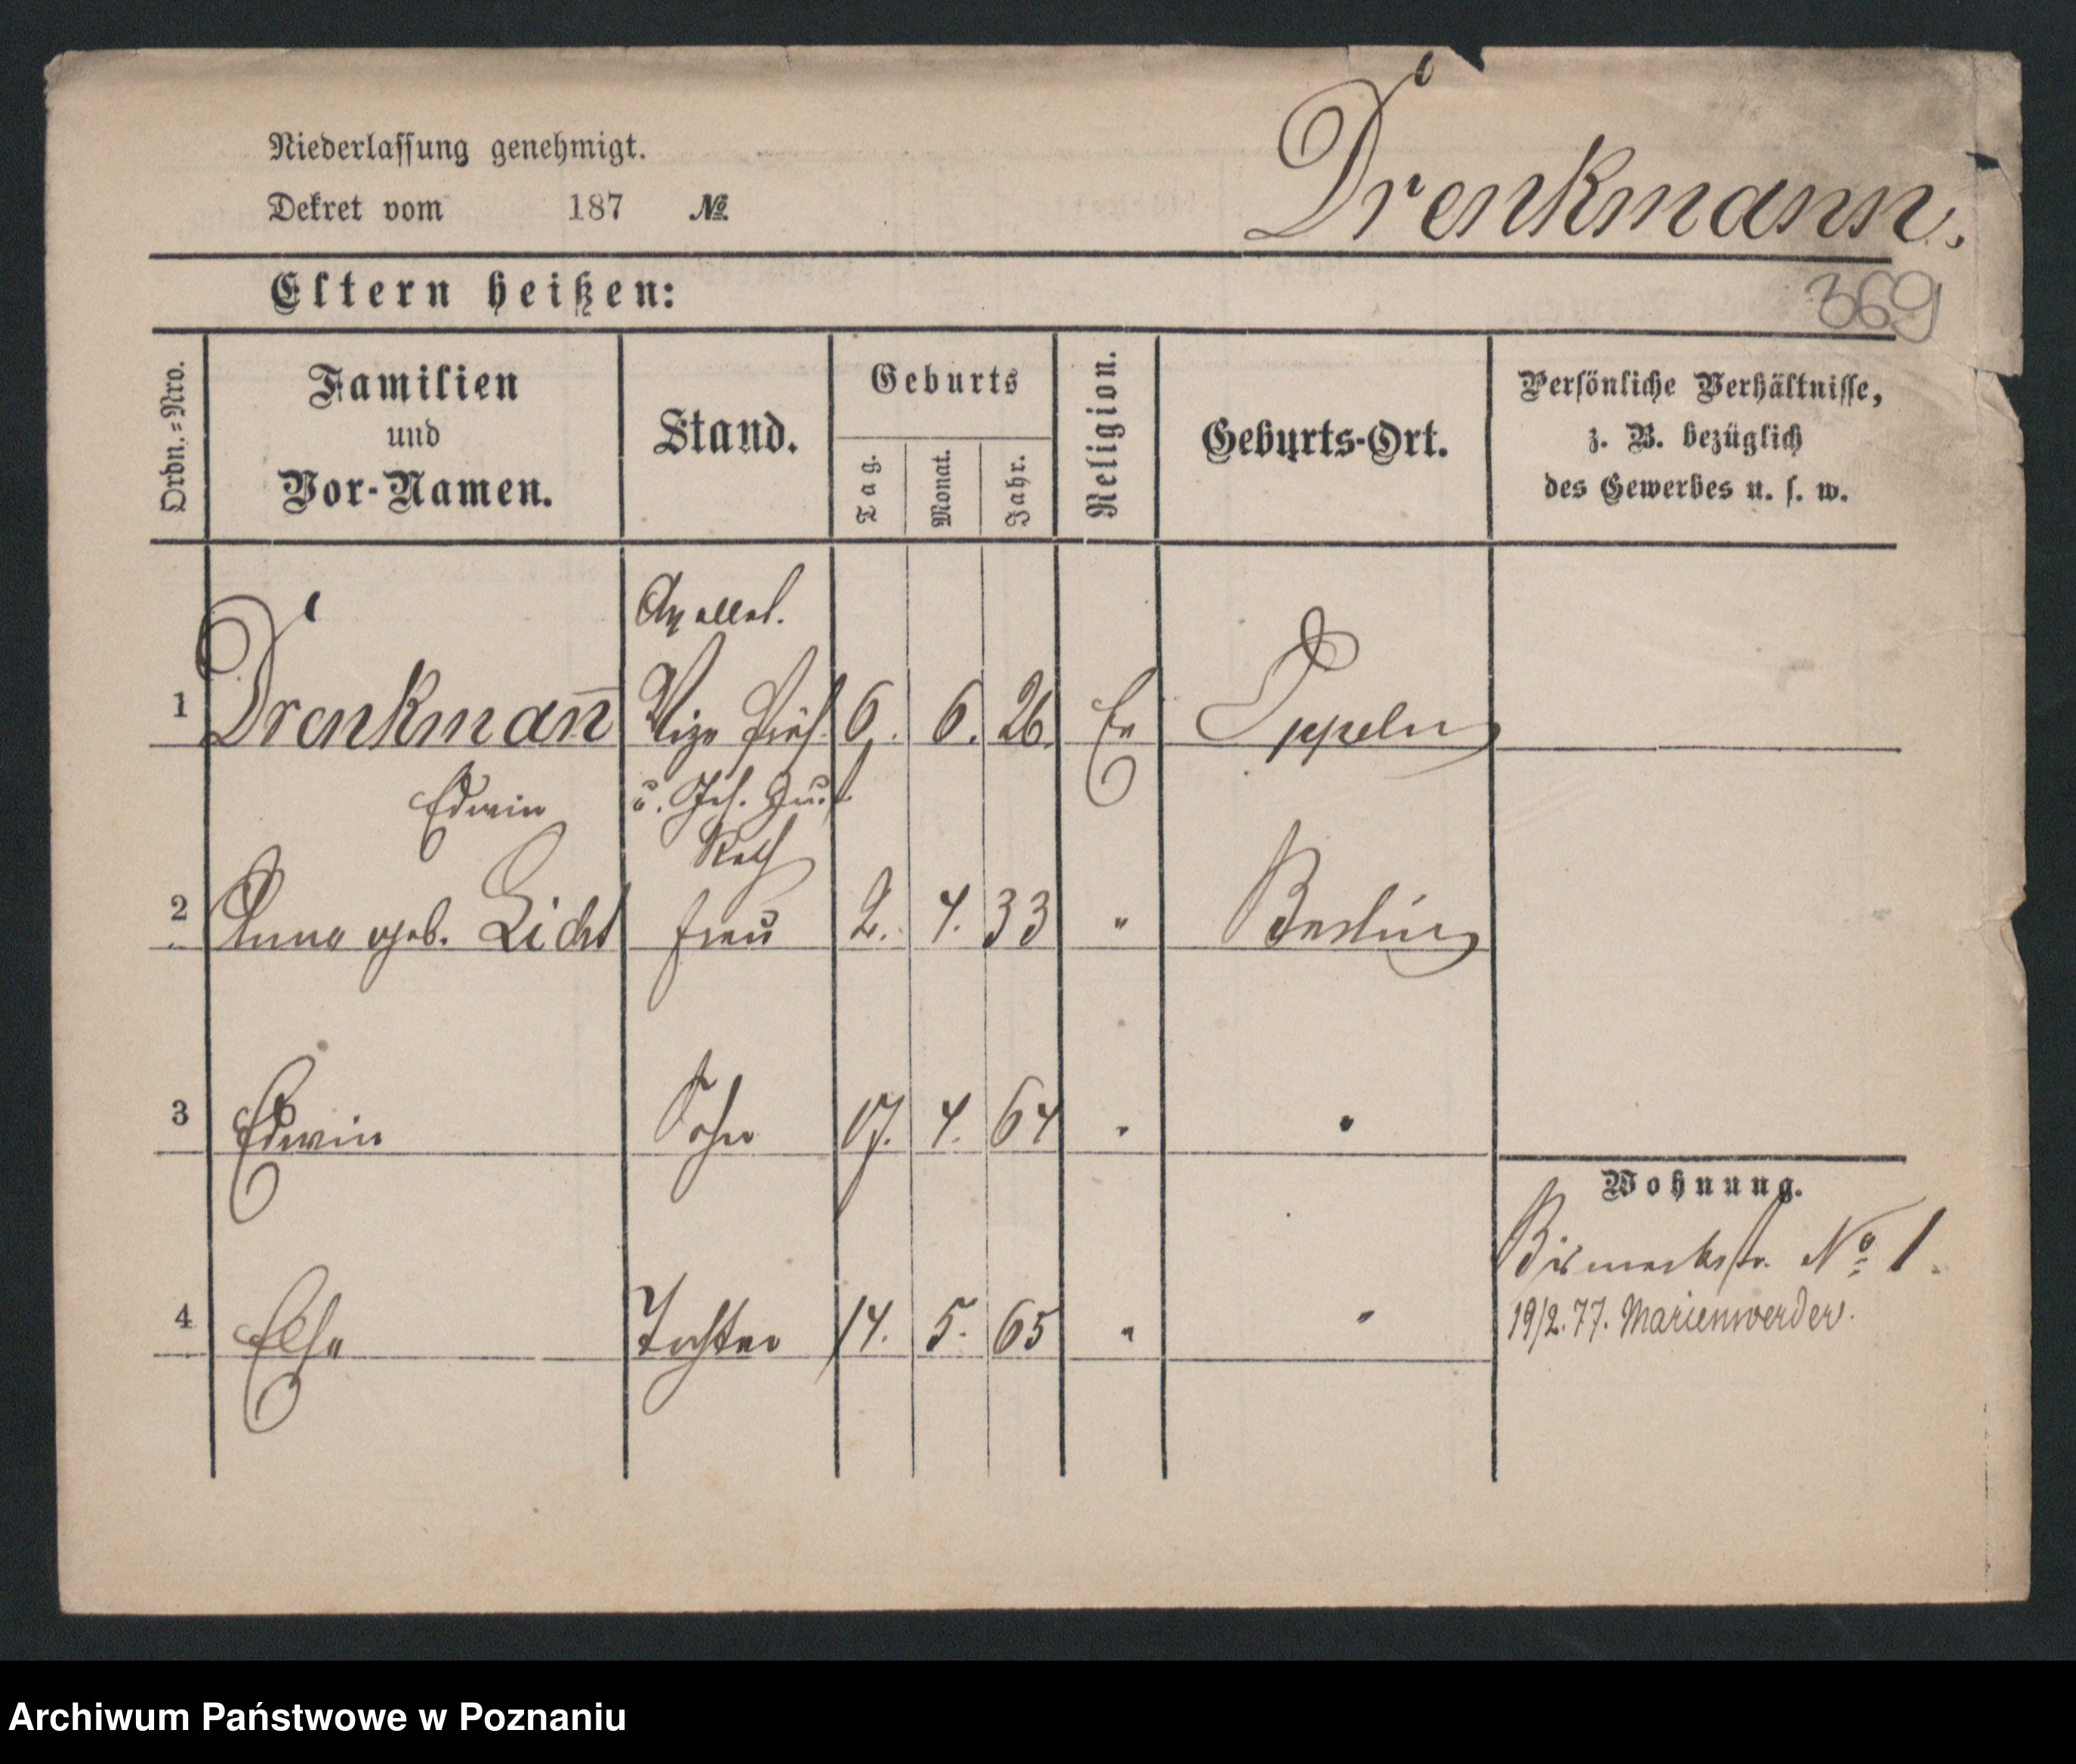 Niederlassung genehmigt.
Dekret vom 187 №
Drenkmann.
Eltern heißen:
369
Ordn.-Nro.
Familien und Vor-Namen.
Stand.
Geburts
Tag. Monat. Jahr.
Religion.
Geburts-Ort.
Persönliche Verhältnisse,
z. B. bezüglich
des Gewerbes u. s. w.
Apellat.
1 Drenkman̅ Vize Präs. 6. 6. 26. Ev Oppeln
Edwin u. Geh. Just.
Rath
2 Anna geb. Licht Frau 2. 4. 33 " Berlin
3 Edwin Sohn 17. 4. 64 " "
Wohnung.
Bismarckstr. No 1.
19/2.77. Marienwerder.
4 Else Tochter 14. 5. 65 " "
Archiwum Państwowe w Poznaniu